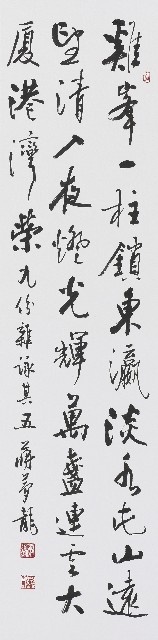 雞峯一柱鎖東瀛淡水屯山遠
望清入夜燈光輝萬盞連雲大
厦港灣榮九份雜詠其五蔣夢龍